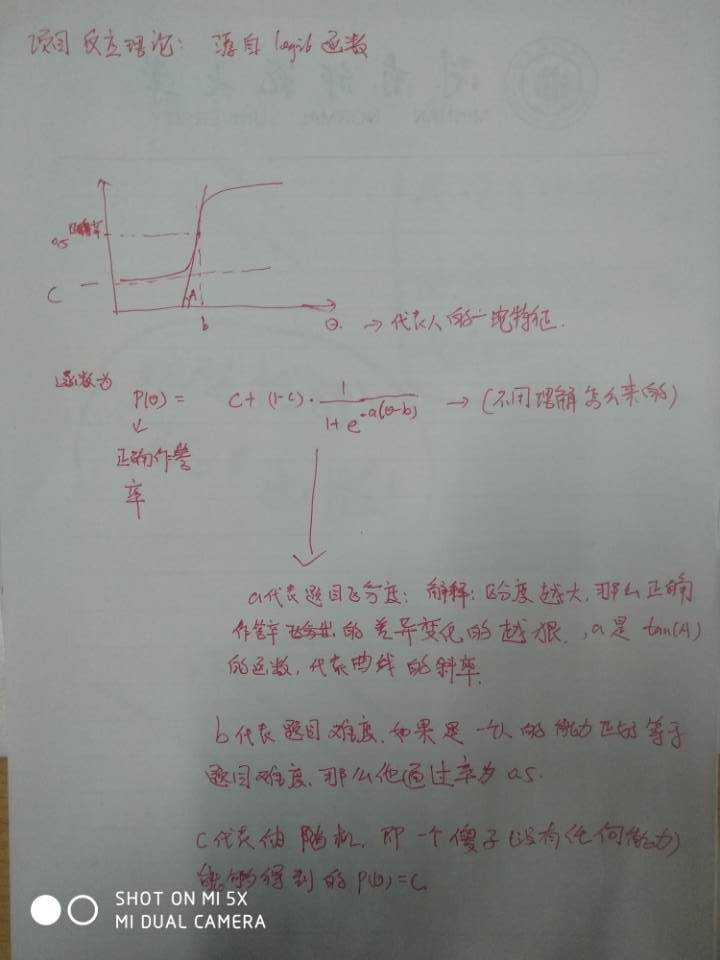 项目反应理论: 源自 logit 函数
0.5 正确率
C
A
b
θ. → 代表人的一吨特征.
函数为
P(θ) = C + (1-C) · 1 / (1 + e^-a(θ-b)) → (不用理解怎么来的)
↓
正确作答
率
a代表题目区分度: 解释: 区分度越大, 那么正确
作答率 的差异变化的越狠. , a是 tan(A)
的函数, 代表曲线的斜率.
b代表题目难度, 如果是一个人的能力正好等于
题目难度, 那么他通过率为 0.5.
C代表伪随机, 即一个傻子(没有任何能力)
能够得到的 P(θ)=C.
SHOT ON MI 5X
MI DUAL CAMERA